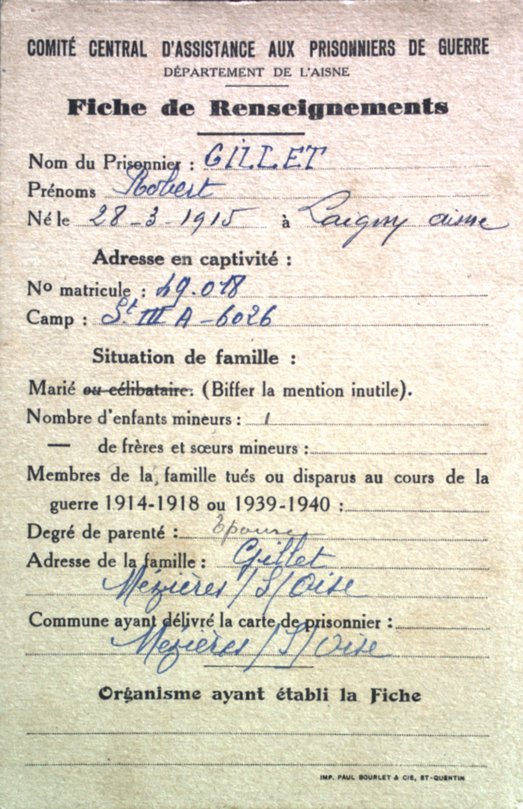 COMITÉ CENTRAL D'ASSISTANCE AUX PRISONNIERS DE GUERRE
DÉPARTEMENT DE L'AISNE
Fiche de Renseignements
Nom du Prisonnier : GILLET
Prénoms Robert
Né le 28-3-1915 à Laigny aisne
Adresse en captivité :
No matricule : 49.018
Camp : St III A-6026
Situation de famille :
Marié ou célibataire. (Biffer la mention inutile).
Nombre d'enfants mineurs : 1
— de frères et sœurs mineurs :
Membres de la famille tués ou disparus au cours de la
guerre 1914-1918 ou 1939-1940 :
Degré de parenté : Epouse
Adresse de la famille : Gillet
Mézières /S/ Oise
Commune ayant délivré la carte de prisonnier :
Mézières /S/ Oise
Organisme ayant établi la Fiche
IMP. PAUL BOURLET & CIE, ST-QUENTIN